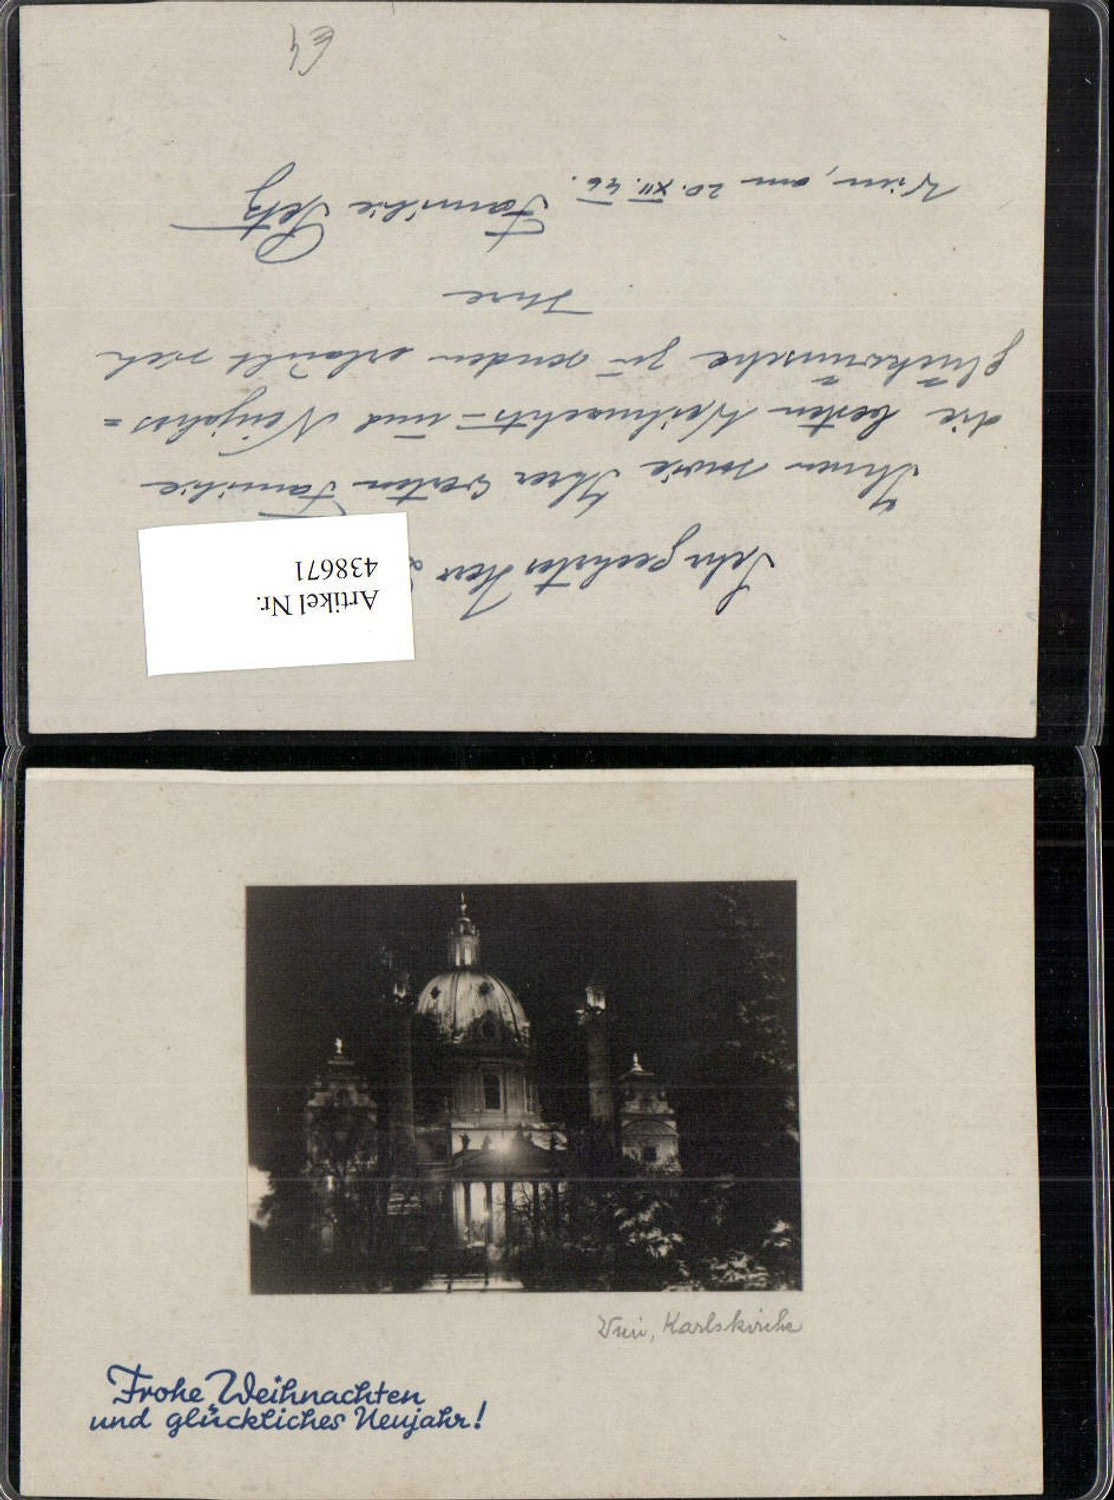 Sehr geehrter Herr
Ihnen sowie Ihrer werten Familie
die besten Weihnachts- und Neujahrs=
glückwünsche zu senden erlaubt sich
Ihre
Familie
Wien, am 20. XII. 46.
Artikel Nr.
438671
Wien, Karlskirche
Frohe Weihnachten
und glückliches Neujahr!